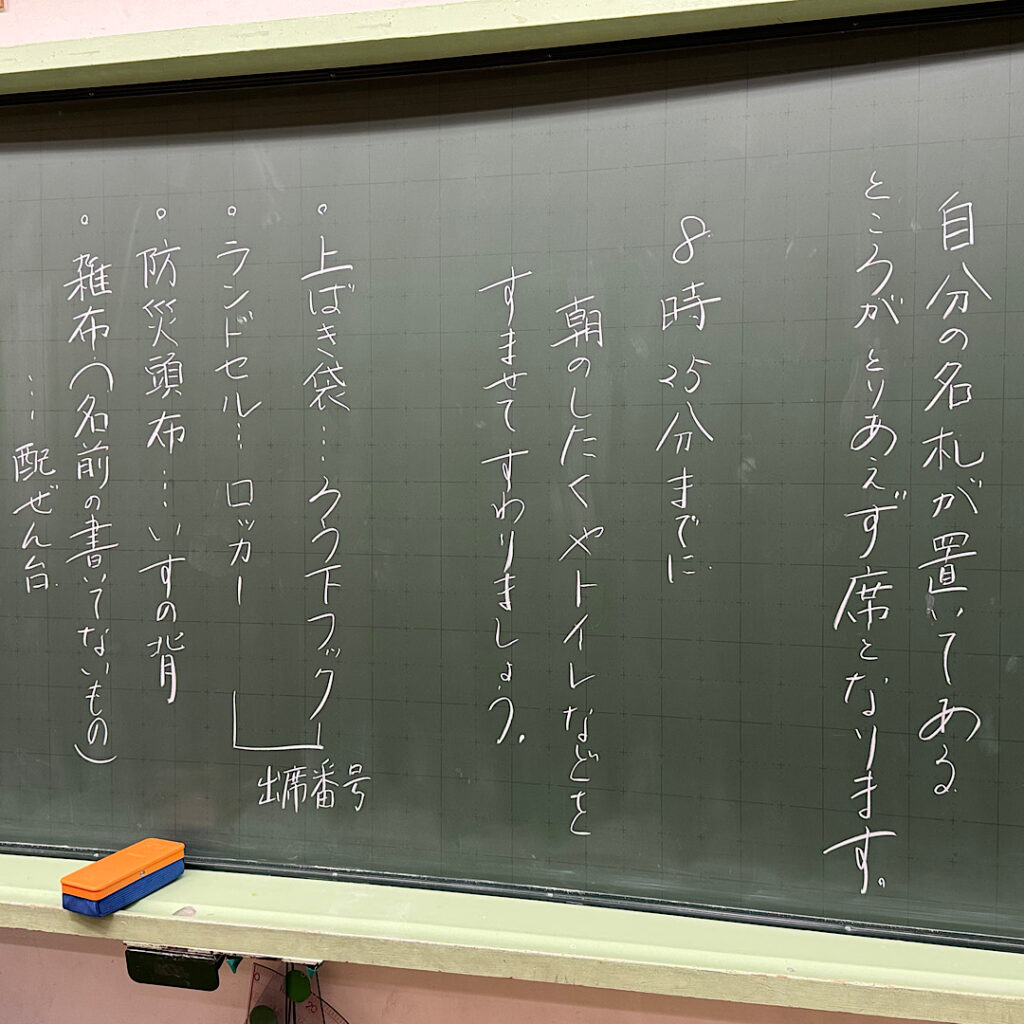 自分の名札が置いてある
ところがとりあえず席となります。
8時25分までに
朝のしたくやトイレなどを
すませてすわりましょう。
。上ばき袋…ろう下フック
。ランドセル…ロッカー
出席番号
。防災頭布…いすの背
。雑布(名前の書いてないもの)
…配ぜん台